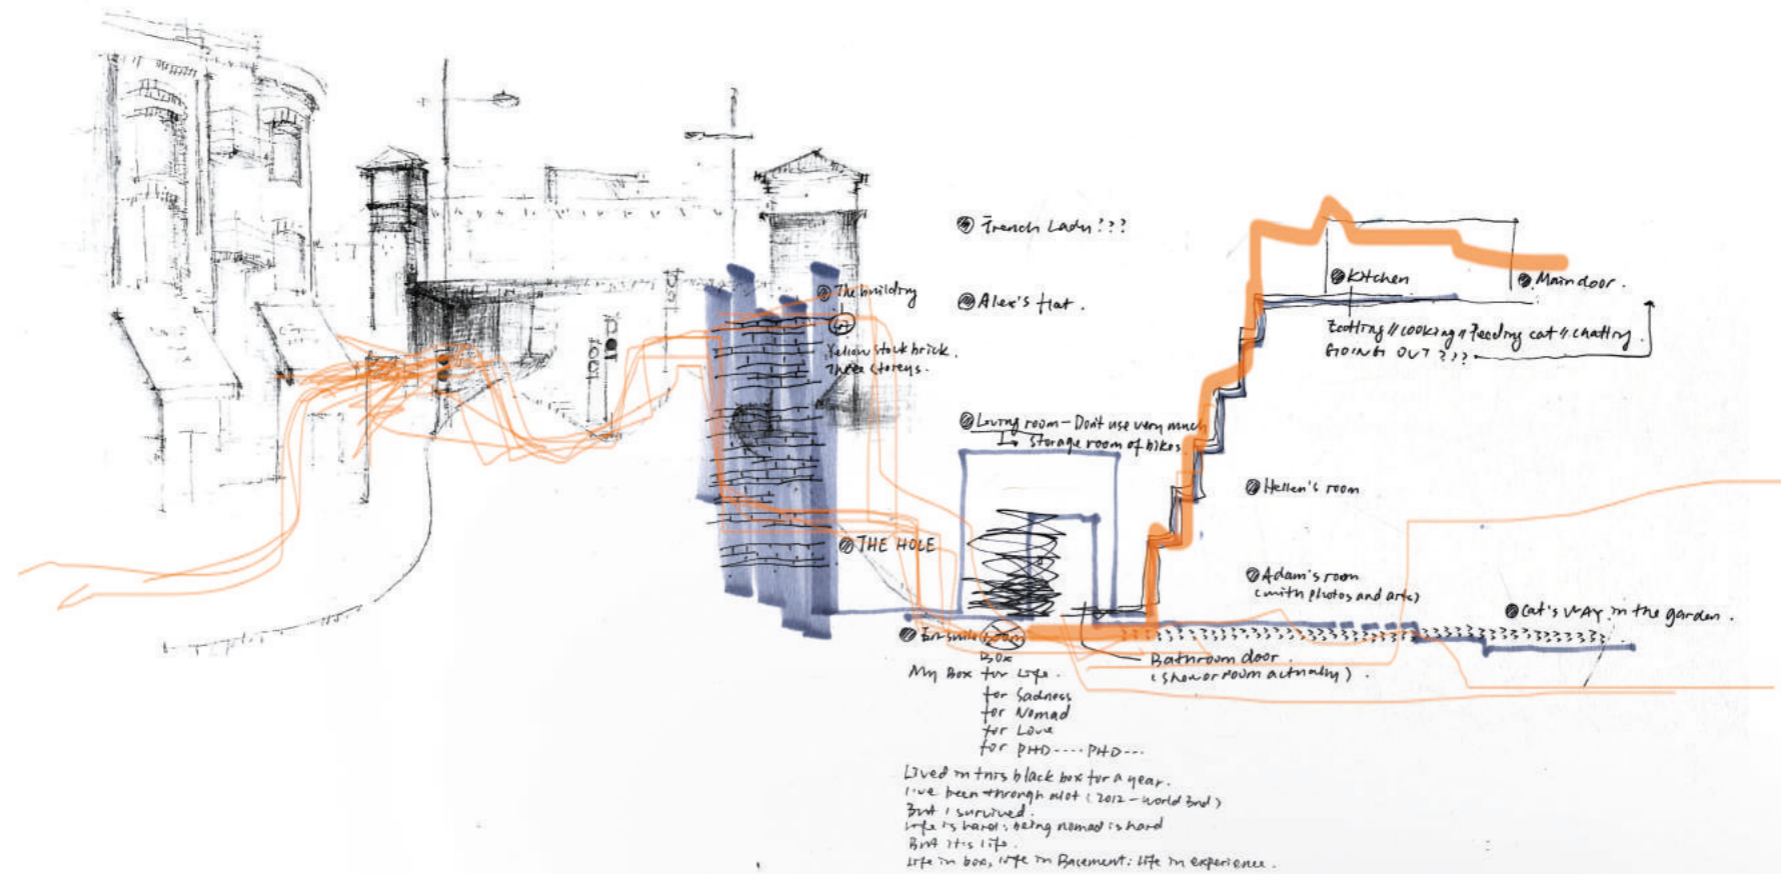 French Lady???
The building
Kitchen
Main door.
Alex's flat.
Yellow stock brick.
Three storeys.
Eatting // cooking // Feeding cat // chatting
GOING OUT ???
Living room - Don't use very much
Storage room of bikes
Hellen's room
THE HOLE
Adam's room
(with photos and arts)
Cat's WAY in the garden.
room
BOX
Bathroom door
(shower room actually).
My Box for Life.
for Sadness
for Nomad
for Love
for PHD----PHD---
Lived in this black box for a year.
I've been through alot (2012 - World End)
But I survived.
Life is hard; being nomad is hard
But it's life.
Life in box, life in Basement: life in experience.